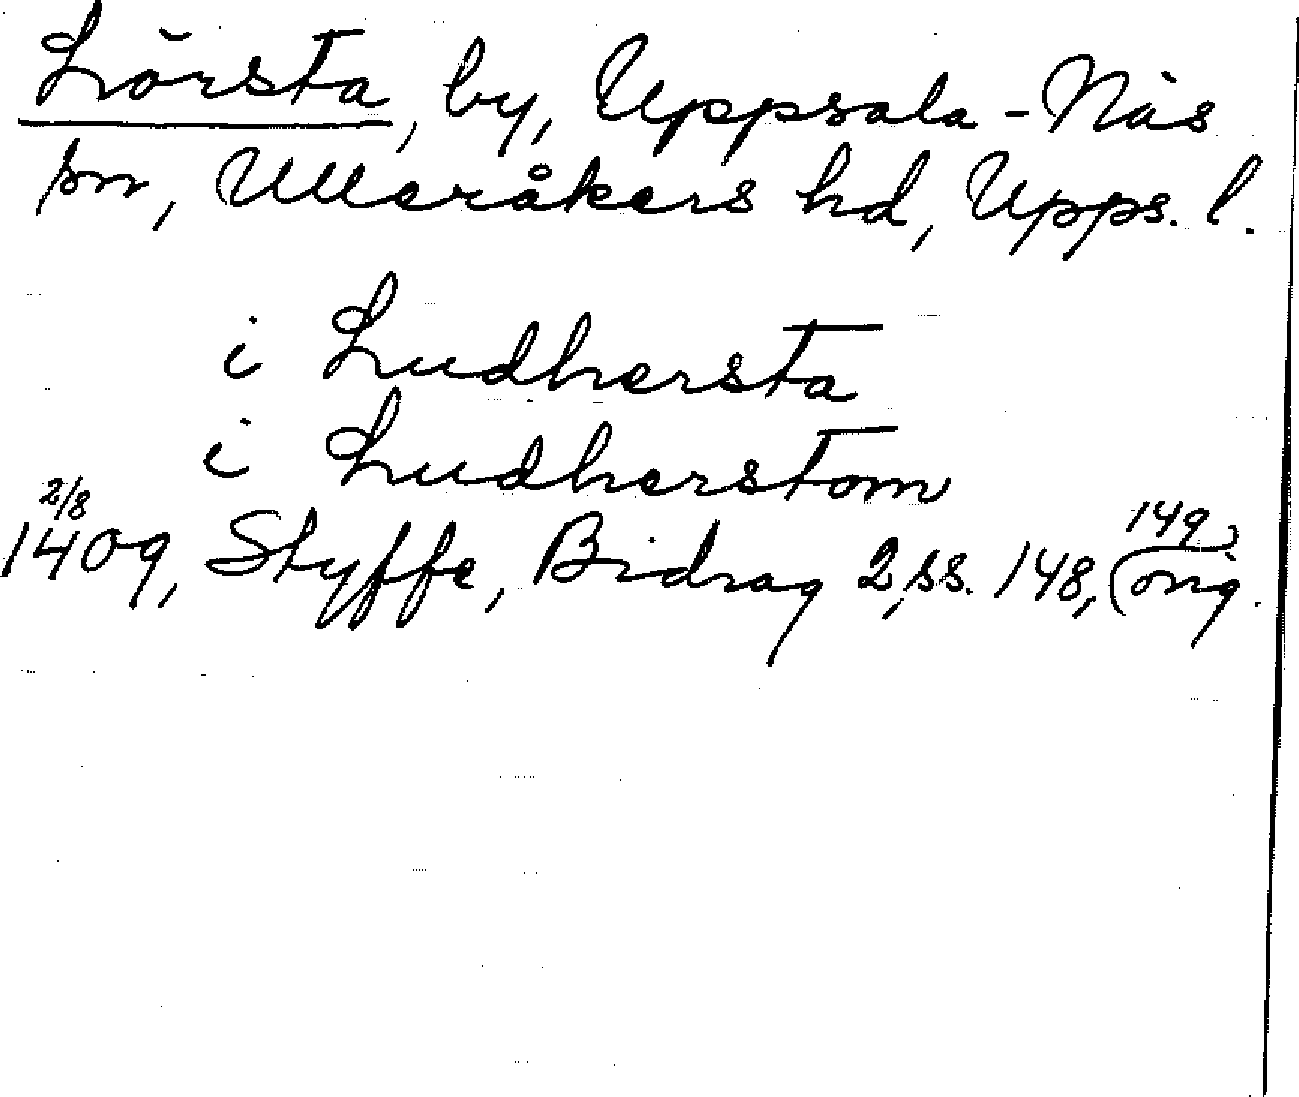 Lörsta, by, Uppsala-Näs
sn, Ulleråkers hd, Upps. l.
i Ludhersta
i Ludherstom
2/8 149
1409, Styffe, Bidrag 2, ss. 148, (orig.